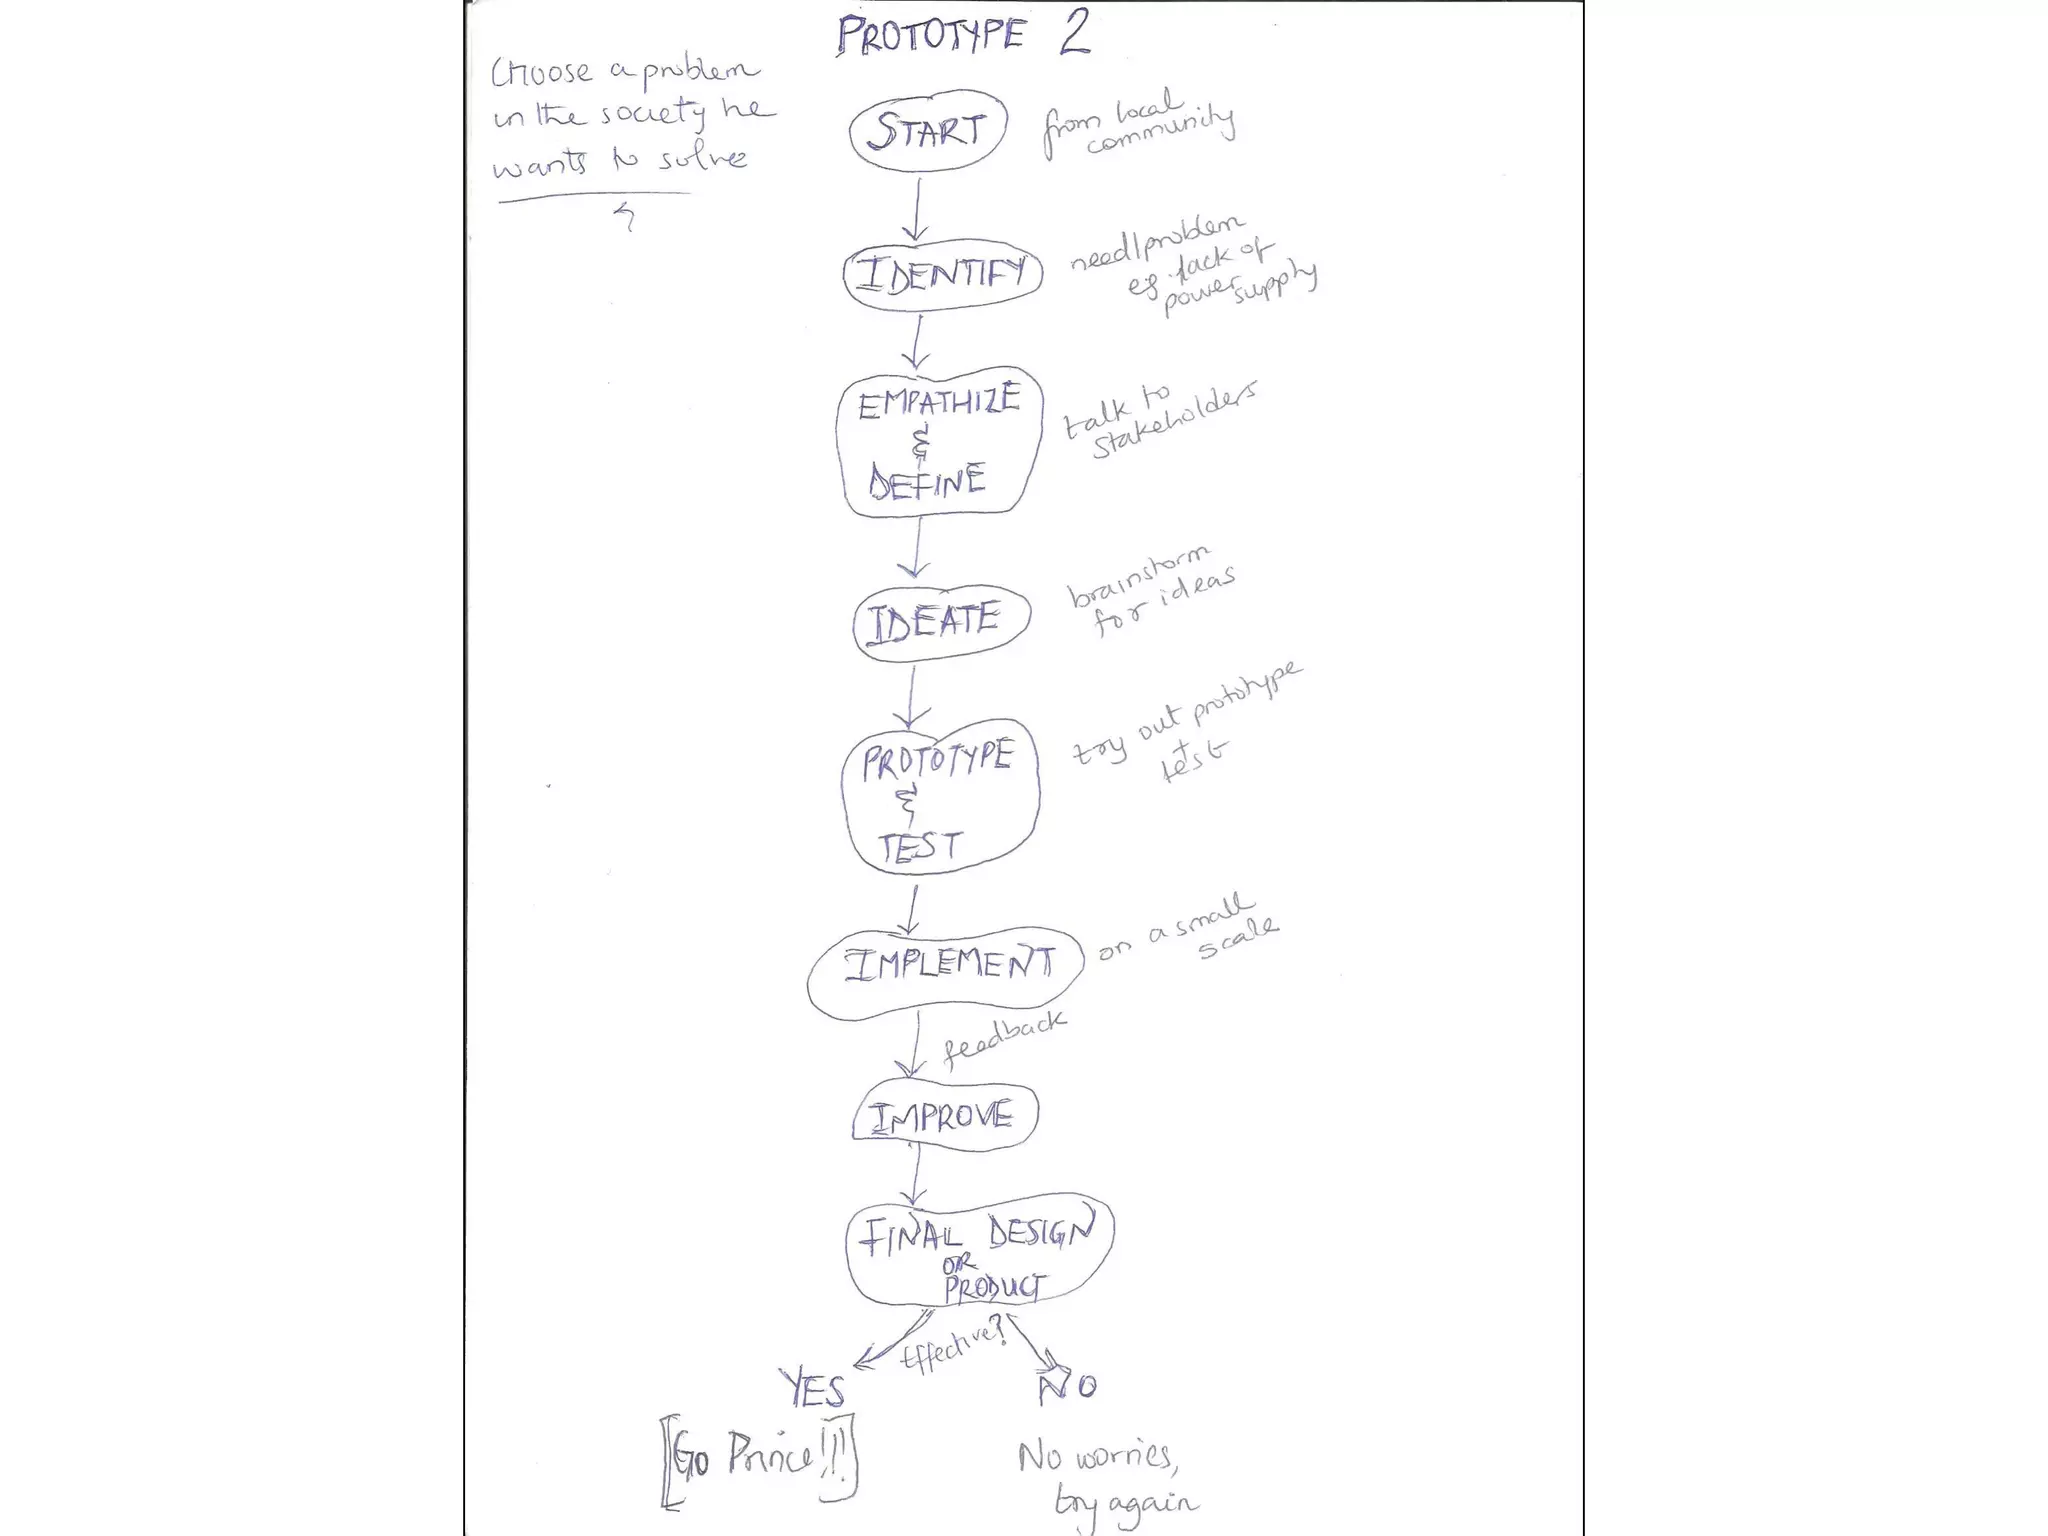 PROTOTYPE 2
Choose a problem
in the society he
wants to solve
START
from local
community
IDENTIFY
need/problem
eg. lack of
power supply
EMPATHIZE
&
DEFINE
talk to
stakeholders
IDEATE
brainstorm
for ideas
PROTOTYPE
&
TEST
try out prototype
+
test
IMPLEMENT
on a small
scale
feedback
IMPROVE
FINAL DESIGN
OR
PRODUCT
Effective?
YES
NO
[Go Prince!!!]
No worries,
try again